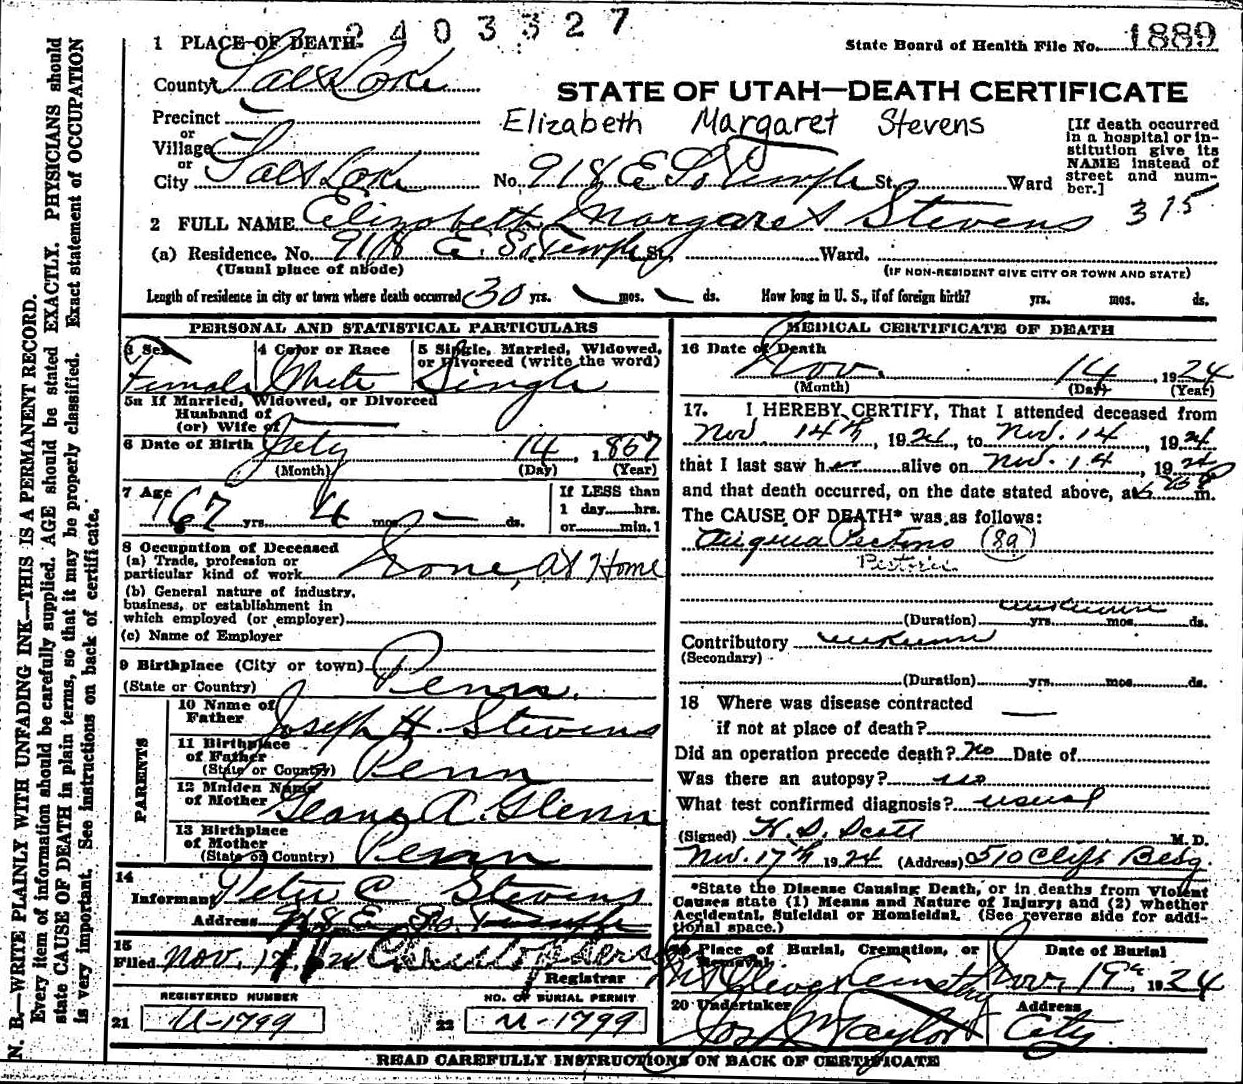 2403327
1 PLACE OF DEATH
State Board of Health File No. 1889
County Salt Lake
STATE OF UTAH—DEATH CERTIFICATE
Precinct
or
Village
or
City Salt Lake
Elizabeth Margaret Stevens
No. 918 E So Temple St. Ward
[If death occurred
in a hospital or in-
stitution give its
NAME instead of
street and num-
ber.]
315
2 FULL NAME Elizabeth Margaret Stevens
(a) Residence. No. 918 E. So. Temple St. Ward.
(Usual place of abode)
(IF NON-RESIDENT GIVE CITY OR TOWN AND STATE)
Length of residence in city or town where death occurred 30 yrs. mos. ds. How long in U. S., if of foreign birth? yrs. mos. ds.
PERSONAL AND STATISTICAL PARTICULARS
3 Sex
Female
4 Color or Race
White
5 Single, Married, Widowed,
or Divorced (write the word)
Single
5a If Married, Widowed, or Divorced
Husband of
(or) Wife of
6 Date of Birth July 14, 1857
(Month) (Day) (Year)
7 Age 67 yrs. 4 mos. — ds.
If LESS than
1 day hrs.
or min.
8 Occupation of Deceased
(a) Trade, profession or
particular kind of work None, at Home
(b) General nature of industry,
business, or establishment in
which employed (or employer)
(c) Name of Employer
9 Birthplace (City or town)
(State or Country) Penn.
PARENTS
10 Name of
Father Joseph H. Stevens
11 Birthplace
of Father
(State or Country) Penn
12 Maiden Name
of Mother A. Glenn
13 Birthplace
of Mother
(State or Country) Penn
14
Informant Peter C Stevens
Address 918 E. So. Temple
15
Filed Nov. 17
Registrar
REGISTERED NUMBER
21 U-1799
NO. OF BURIAL PERMIT
22 U-1799
MEDICAL CERTIFICATE OF DEATH
16 Date of Death
Nov. 14, 1924
(Month) (Day) (Year)
17. I HEREBY CERTIFY, That I attended deceased from
Nov 14th, 1924, to Nov. 14 1924
that I last saw her alive on Nov. 14 1924
and that death occurred, on the date stated above, at m.
The CAUSE OF DEATH* was as follows:
Angina Pectoris (89)
Pectoris
unknown
(Duration) yrs. mos. ds.
Contributory unknown
(Secondary)
(Duration) yrs. mos. ds.
18 Where was disease contracted
if not at place of death?
Did an operation precede death? no Date of
Was there an autopsy? no
What test confirmed diagnosis? usual
(Signed) H. D. Scott M. D.
Nov. 17th 1924 (Address) 510 Clift Bldg.
*State the Disease Causing Death, or in deaths from Violent
Causes state (1) Means and Nature of Injury; and (2) whether
Accidental, Suicidal or Homicidal. (See reverse side for addi-
tional space.)
19 Place of Burial, Cremation, or
Removal.
Mt Olivet Cemetery
Date of Burial
Nov. 19th, 1924
20 Undertaker
Jos Wm Taylor
Address
City
READ CAREFULLY INSTRUCTIONS ON BACK OF CERTIFICATE
N. B.—WRITE PLAINLY WITH UNFADING INK—THIS IS A PERMANENT RECORD.
Every item of information should be carefully supplied. AGE should be stated EXACTLY. PHYSICIANS should
state CAUSE OF DEATH in plain terms, so that it may be properly classified. Exact statement of OCCUPATION
is very important. See instructions on back of certificate.